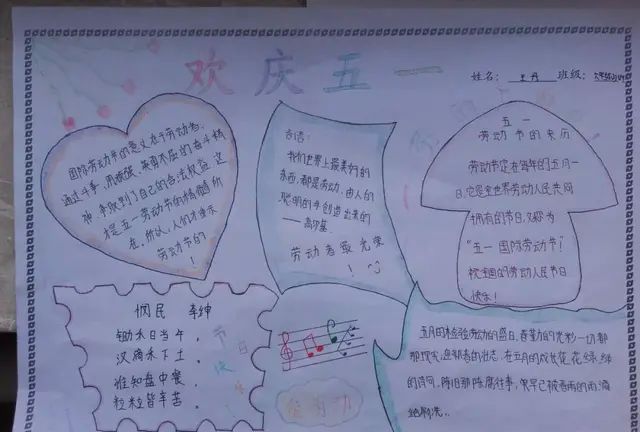 欢庆五一
姓名： 王丹 班级：
国际劳动节的意义在于劳动者
通过斗争，用顽强、英勇不屈的奋斗精
神，争取到了自己的合法权益，这
才是五一劳动节的精髓所
在，所以，人们才庆祝
劳动节的
！
名言：
我们世界上最美好的
东西，都是劳动、由人的
聪明的手创造出来的
——高尔基
劳动者最光荣
！
五一
劳动节的来历
劳动节定在每年的五月一
日，它是全世界劳动人民共同
拥有的节日，又称为
“五一国际劳动节”！
祝全国的劳动人民节日
快乐！
悯民 李绅
锄禾日当午，
汉滴禾下土。
谁知盘中餐，
粒粒皆辛苦。
节
日
快
乐
劳动
五月的检验劳动的盛日，春的光彩一切都
那现实，在五月的成长花花绿绿
的诗间，陈旧那陈腐往事，早已被春雨的雨滴
给刷洗..